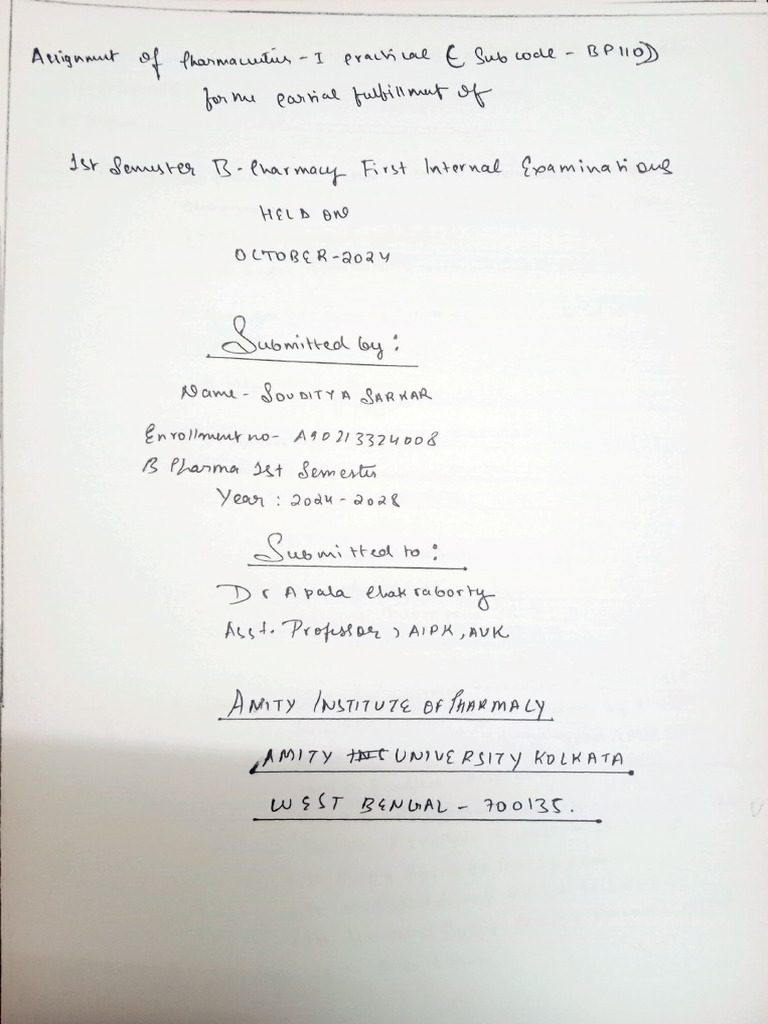 Assignment of Pharmaceutics - I Practical ( Sub code - BP110)
for the partial fulfillment of
1st Semester B-Pharmacy First Internal Examinations
HELD ON
OCTOBER-2024
Submitted by:
Name - SOUDITYA SARKAR
Enrollment no- A90213324008
B Pharma 1st Semester
Year : 2024 - 2028
Submitted to:
Dr Apala Chakraborty
Asst. Professor, AIPK, AUK
AMITY INSTITUTE OF PHARMACY
AMITY UNIVERSITY KOLKATA
WEST BENGAL - 700135.